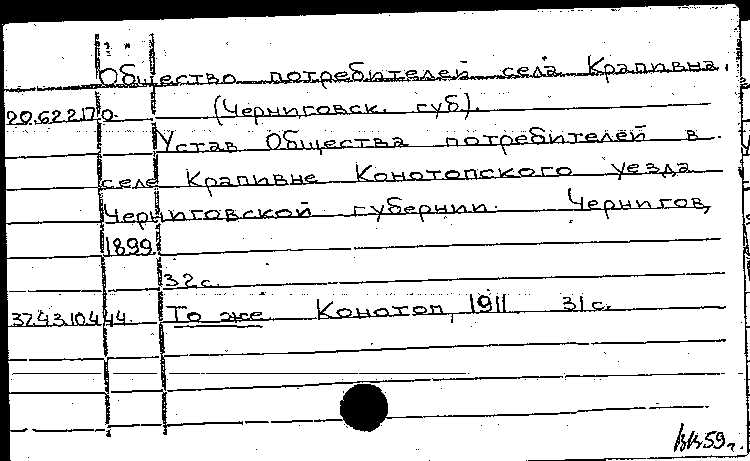 Общество потребителей села Крапивна.
20.62.2.170. (Черниговск. губ).
Устав Общества потребителей в
селе Крапивне Конотопского уезда
Черниговской губернии. Чернигов,
1899.
32 с.
37.43.10.444. То же Конотоп, 1911. 31 с.